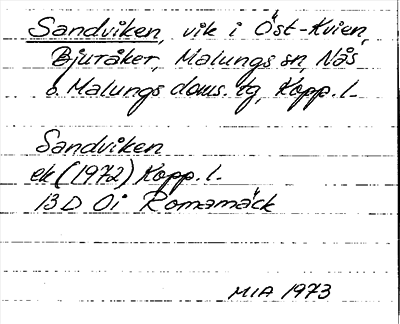 Sandviken, vik i Öst-Kvien,
Bjuråker, Malungs sn, Nås
o Malungs doms. tg, Kopp. l.
Sandviken
ek (1972) Kopp. l.
13D 0i Romamäck
MIA 1973